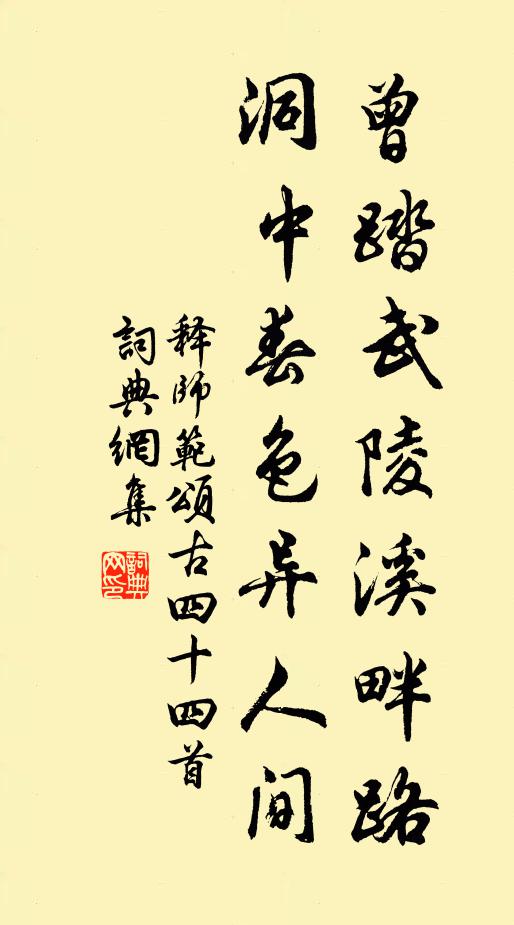 曾踏武陵溪畔路
洞中春色异人间
释師範頌古四十四首
詞典網集
詞典网印